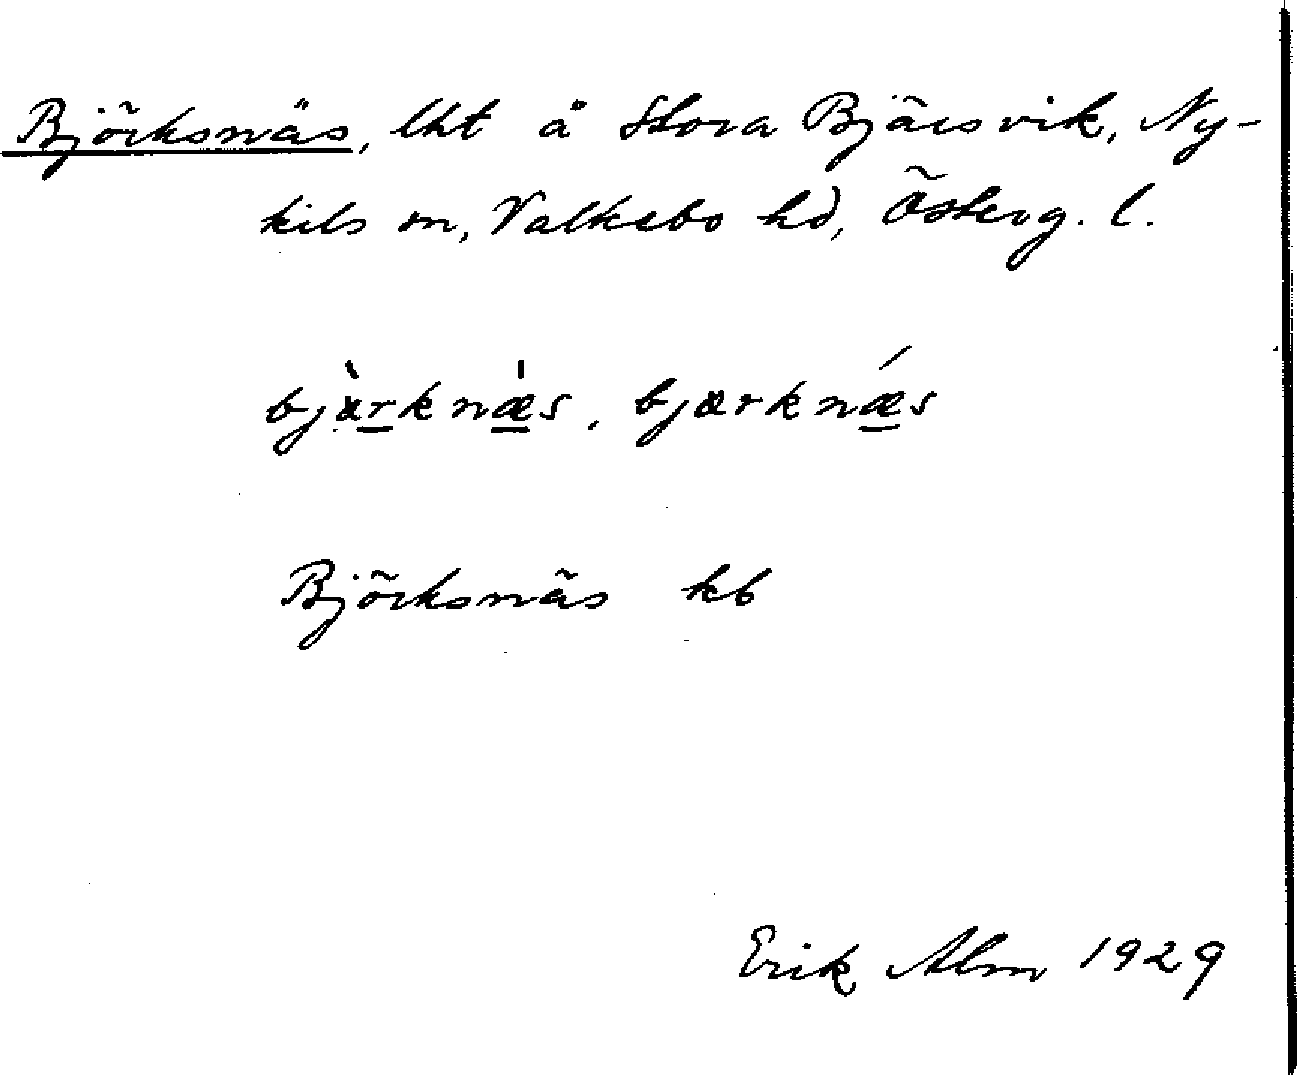 Björksnäs, lht å Stora Bjärsvik, Ny-
kils sn, Valkebo hd, Österg. l.
bjærknæs, bjærknǽs
Björksnäs kb
Erik Alm 1929